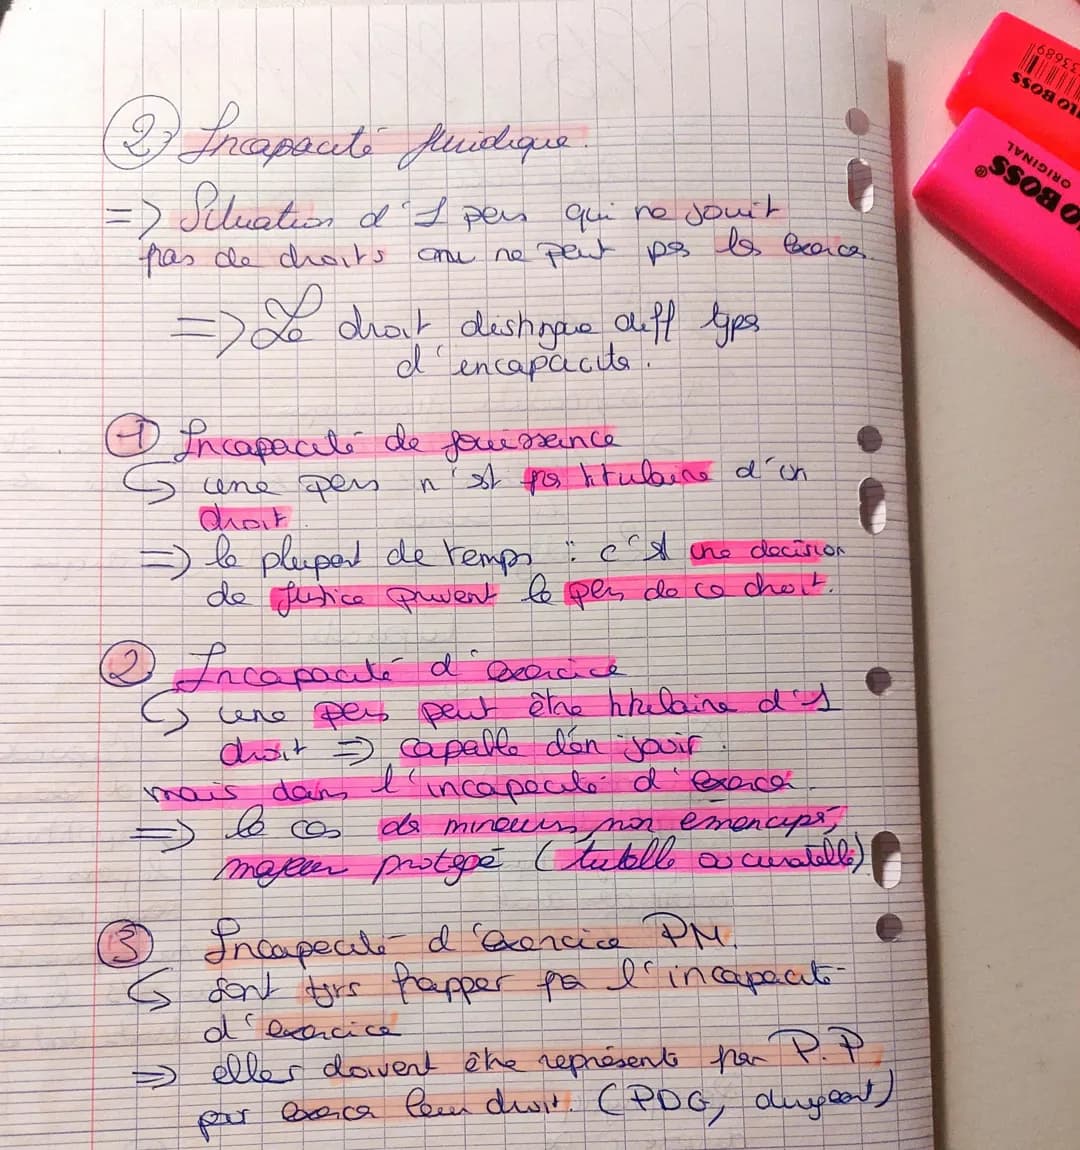 ② Incapacité Juridique.
=> Situation d'1 pers qui ne jouit
pas de droits ou ne peut ps les exercer
=> Le droit distingue diff typs
d'encapacité.
① Incapacité de jouissance
↪ une pers n'est ps titulaire d'un
droit.
=> le plupart de temps : c'st une decision
de justice privent le pers de ce droit.
② Incapacité d'exercice
↪ une pers peut être titulaire d'1
droit => capable d'en jouir.
mais dans l'incapacité d'exercer.
=> le cas ds mineurs non emancips,
majeur protégé (tutelle ou curatelle)
③ Incapacité d'exercice PM.
↪ sont tjrs frapper pa l'incapacité
d'exercice
=> elles doivent être représents par P.P
pur exercer leur droit. (PDG, dirigeant)
33689
LO BOSS
O BOSS®
ORIGINAL